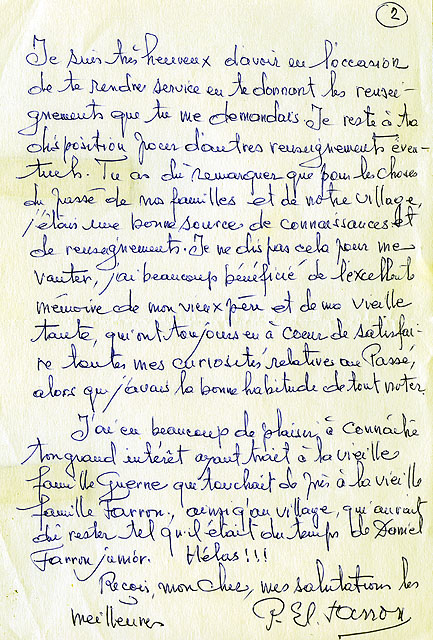 2
Je suis très heureux d'avoir eu l'occasion
de te rendre service en te donnant les rensei-
gnements que tu me demandais. Je reste à ta
disposition pour d'autres renseignements éven-
tuels. Tu as dû remarquer que pour les choses
du passé de nos familles et de notre village,
j'étais une bonne source de connaissances et
de renseignements. Je ne dis pas cela pour me
vanter, j'ai beaucoup bénéficié de l'excellente
mémoire de mon vieux père et de ma vieille
tante, qui ont toujours eu à coeur de satisfai-
re toutes mes curiosités relatives au Passé,
alors que j'avais la bonne habitude de tout noter.
J'ai eu beaucoup de plaisir, à connaître
ton grand intérêt ayant trait à la vieille
famille Guerne que touchait de près à la vieille
famille Farron, ainsi qu'au village, qui aurait
dû rester tel qu'il était du temps de Daniel
Farron junior. Hélas!!!
Reçois, mon cher, mes salutations les
meilleures P. El. Farron